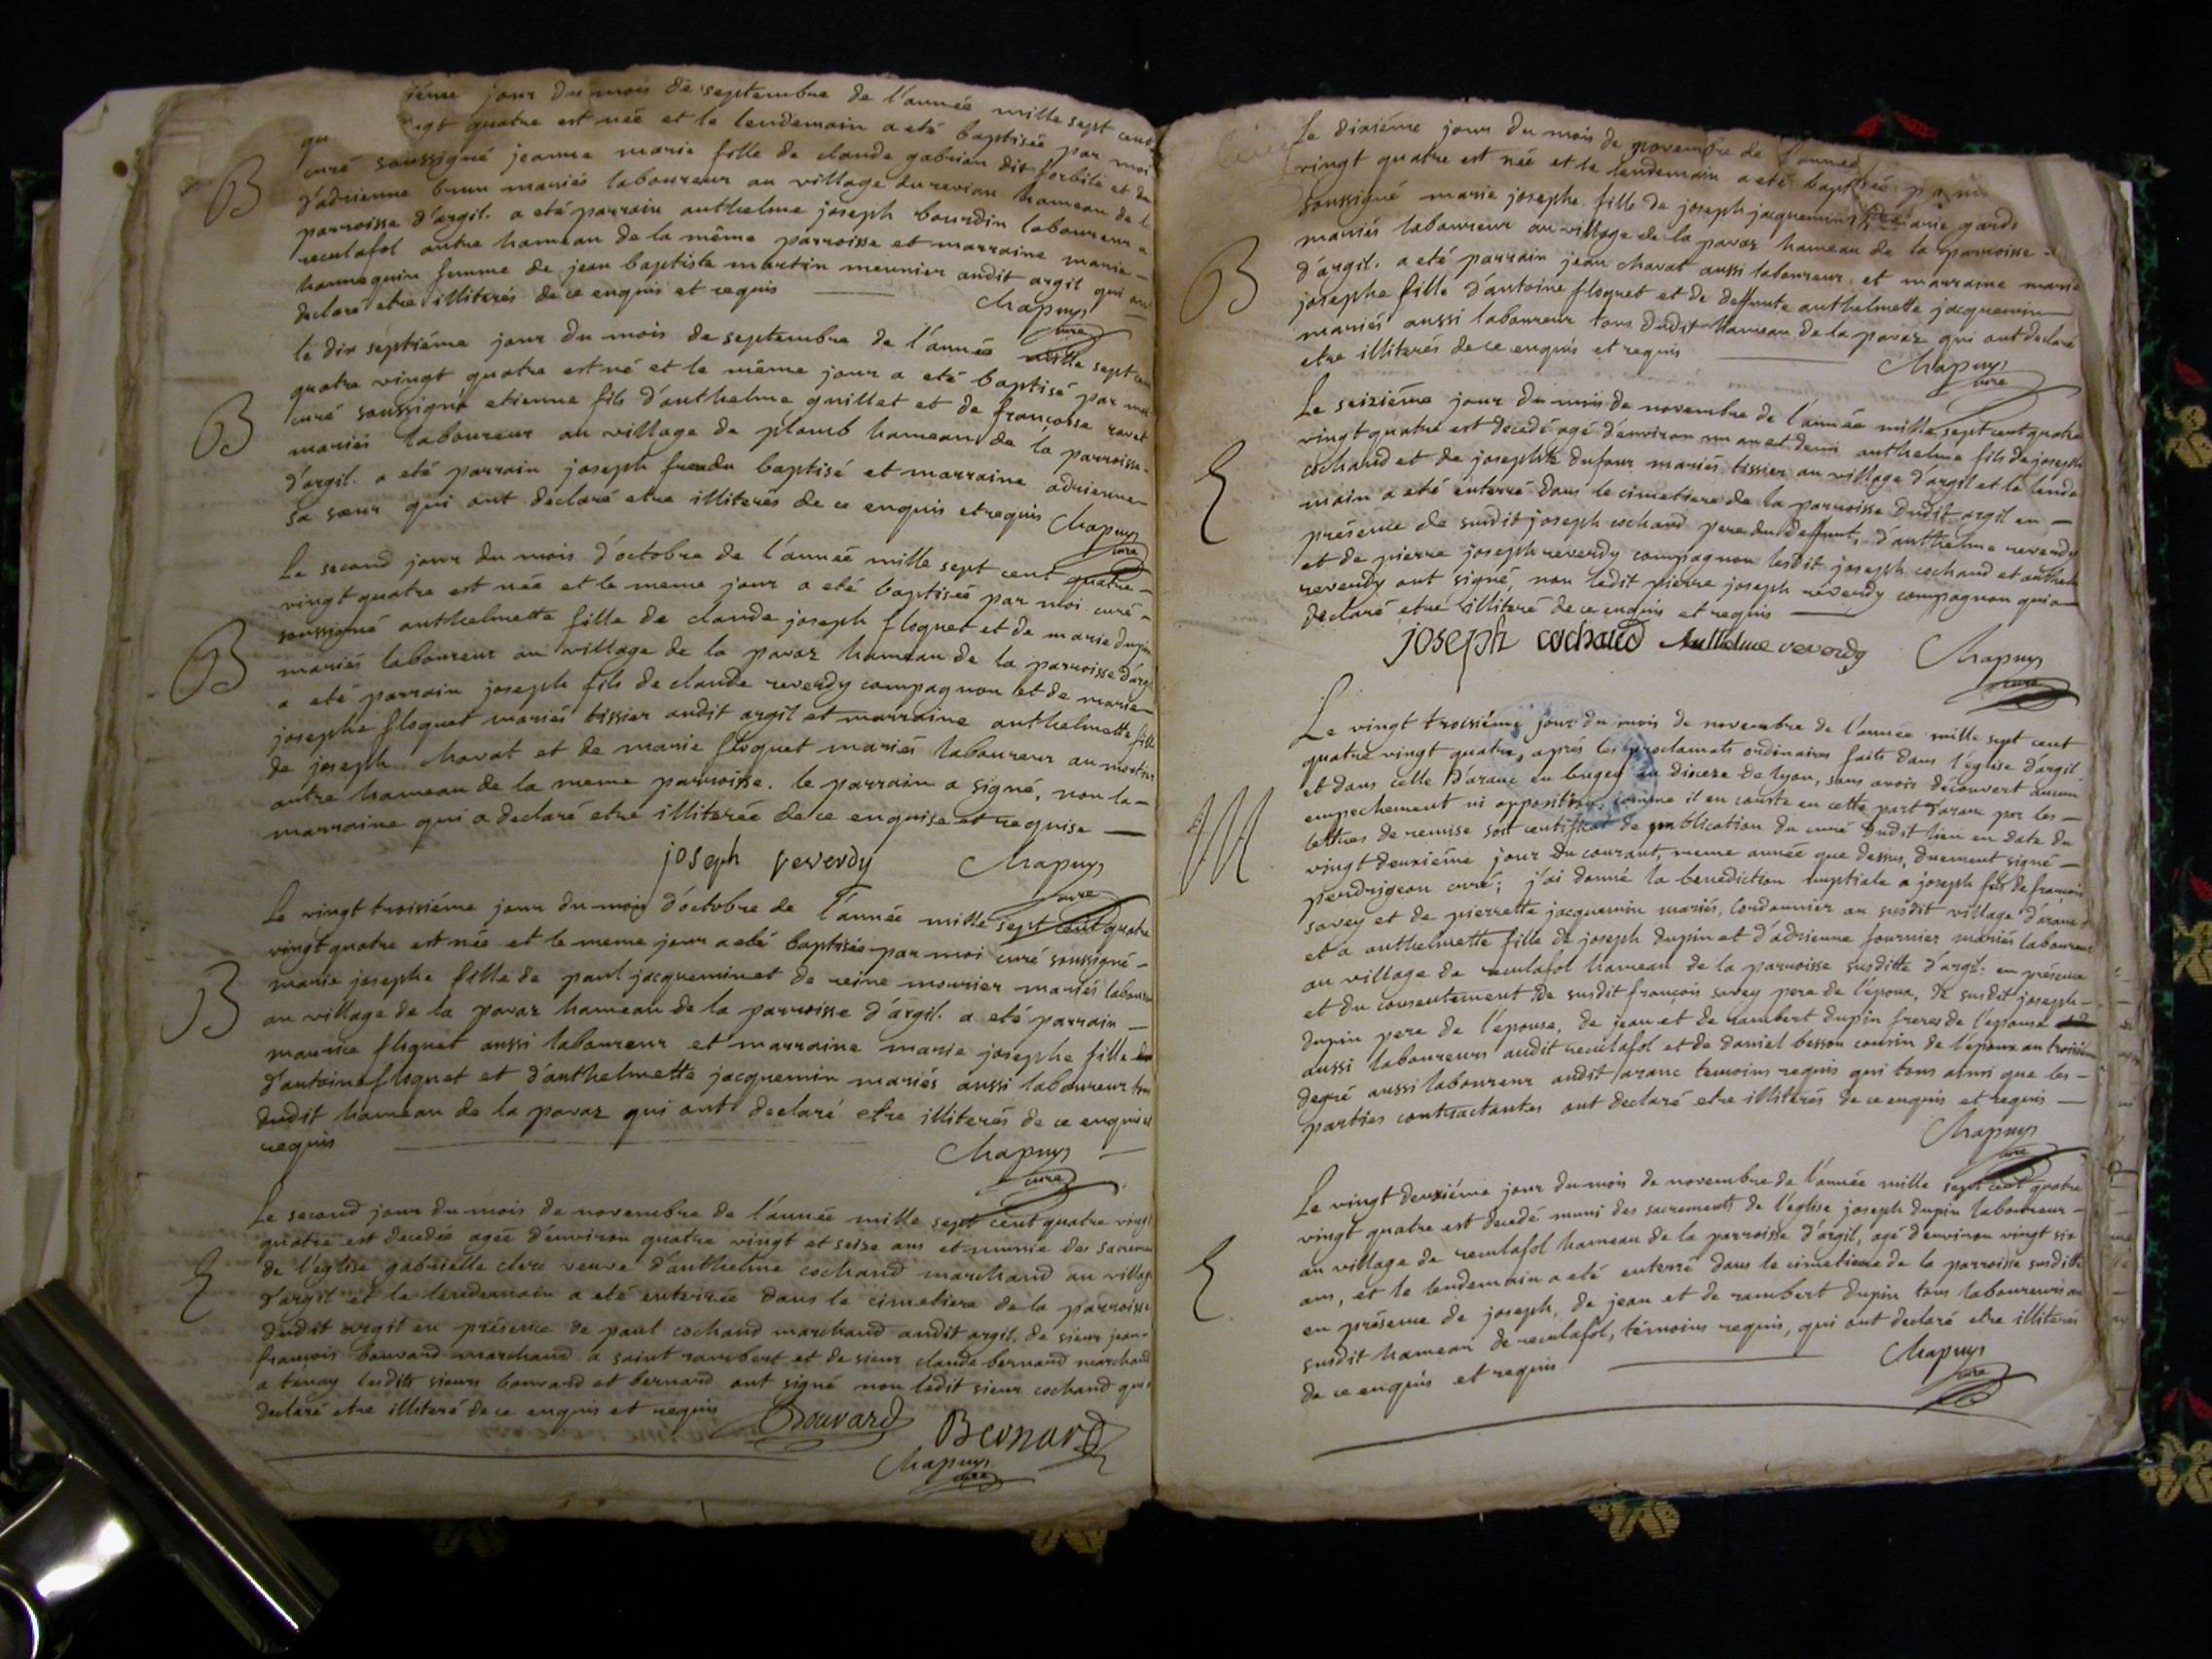 ième jour du mois de septembre de l'année mille sept cent
qu vingt quatre est née et le lendemain a eté baptisée par moi
B
curé soussigné jeanne marie fille de claude gabrion dit sorbile et de
d'adrienne brun mariés laboureur au village hameau de l
parroisse d'argil. a eté parrain anthelme joseph bourdin laboureur a
reculafol autre hameau de la même parroisse et marraine marie
hannequin femme de jean baptiste martin meunier audit argil qui ont
declaré etre illiterés de ce enquis et requis
Chapuys
curé
le dix septiéme jour du mois de septembre de l'année mille sept cent
quatre vingt quatre est né et le même jour a eté baptisé par moi
B
curé soussigné etienne fils d'anthelme guillet et de francoise ravet
mariés laboureur au village de plomb hameau de la parroisse
d'argil. a eté parrain joseph frere du baptisé et marraine adrienne
sa sœur qui ont declaré etre illiterés de ce enquis et requis Chapuys
curé
Le second jour du mois d'octobre de l'année mille sept cent quatre
vingt quatre est née et le meme jour a eté baptisée par moi curé
soussigné anthelmette fille de claude joseph floquet et de marie dupin
B
mariés laboureur au village de la pavaz hameau de la parroisse d'argil
a eté parrain joseph fils de claude reverdy compagnon et de marie
josephe floquet mariés tissier audit argil et marraine anthelmette fille
de joseph chavat et de marie floquet mariés laboureur au
autre hameau de la meme parroisse. le parrain a signé, non la
marraine qui a declaré etre illiterée de ce enquise et requise
joseph reverdy Chapuys
curé
Le vingt troisiéme jour du mois d'octobre de l'année mille sept cent quatre
vingt quatre est née et le meme jour a eté baptisée par moi curé soussigné
marie josephe fille de paul jacquemin et de reine mounier mariés laboureur
B
au village de la pavaz hameau de la parroisse d'argil. a eté parrain
maurice floquet aussi laboureur et marraine marie josephe fille
d'antoine floquet et d'anthelmette jacquemin mariés aussi laboureur tous
dudit hameau de la pavaz qui ont declaré etre illiterés de ce enquis et
requis
Chapuys
curé
Le second jour du mois de novembre de l'année mille sept cent quatre vingt
quatre est decedée agée d'environ quatre vingt et seize ans et munie des sacremens
E
de l'église gabrielle clerc veuve d'anthelme cochand marchand au village
d'argil et le lendemain a eté enterrée dans le cimetiere de la parroisse
dudit argil en présence de paul cochand marchand audit argil, de sieur jean
françois bouvard marchand a saint rambert et de sieur claude bernard marchand
a tenay lesdits sieurs bouvard et bernard ont signé non ledit sieur cochand qui a
declaré etre illiteré de ce enquis et requis Bouvard
Bernard
Chapuys
curé
Le dixiéme jour du mois de novembre de l'année
vingt quatre est née et le lendemain a eté baptisée
soussigné marie josephe fille de joseph jacquemin et de marie garde
B
mariés laboureur au village de la pavaz hameau de la parroisse
d'argil. a eté parrain jean chavat aussi laboureur, et marraine marie
josephe fille d'antoine floquet et de deffunte anthelmette jacquemin
mariés aussi laboureur tous dudit hameau de la pavaz qui ont declaré
etre illiterés de ce enquis et requis
Chapuys
curé
Le seiziéme jour du mois de novembre de l'année mille sept cent quatre
vingt quatre est decedé agé d'environ un an et demi anthelme fils de joseph
E
cochand et de josephte dufour mariés tissier au village d'argil et le lende
main a eté enterré dans le cimetiere de la parroisse dudit argil en
présence de susdit joseph cochand pere du deffunt, d'anthelme reverdy
et de pierre joseph reverdy compagnon lesdit joseph cochand et anthelme
reverdy ont signé, non ledit pierre joseph reverdy compagnon qui a
declaré etre illiteré de ce enquis et requis
joseph cochand Anthelme reverdy Chapuys
curé
Le vingt troisiéme jour du mois de novembre de l'année mille sept cent
quatre vingt quatre, aprés les proclamats ordinaires faits dans l'église d'argil
et dans celle d'aranc en bugey en dioceze de lyon, sans avoir découvert aucun
M
empechement ni opposition, comme il en conste en cette part d'aranc par les
lettres de remise soit certificat de publication du curé dudit lieu en date du
vingt deuxiéme jour du courant, meme année que dessus, duement signé
pendrigeon curé; j'ai donné la benediction nuptiale a joseph fils de françois
savey et de pierrette jacquemin mariés, cordonnier au susdit village d'aranc
et a anthelmette fille de joseph dupin et d'adrienne fournier mariés laboureur
au village de reculafol hameau de la parroisse susditte d'argil. en présence
et du consentement de susdit françois savey pere de l'époux, de susdit joseph
dupin pere de l'épouse, de jean et de rambert dupin freres de l'epouse
aussi laboureurs audit reculafol et de daniel besson cousin de l'époux au troisiéme
degré aussi laboureur audit aranc temoins requis qui tous ainsi que les
parties contractantes ont declaré etre illiterés de ce enquis et requis
Chapuys
curé
Le vingt deuxiéme jour du mois de novembre de l'année mille sept cent quatre
vingt quatre est decedé muni des sacrements de l'église joseph dupin laboureur
E
au village de reculafol hameau de la parroisse d'argil, agé d'environ vingt six
ans, et le lendemain a eté enterré dans le cimetiere de la parroisse susditte
en présence de joseph, de jean et de rambert dupin tous laboureurs au
susdit hameau de reculafol, témoins requis, qui ont declaré etre illiterés
de ce enquis et requis
Chapuys
curé